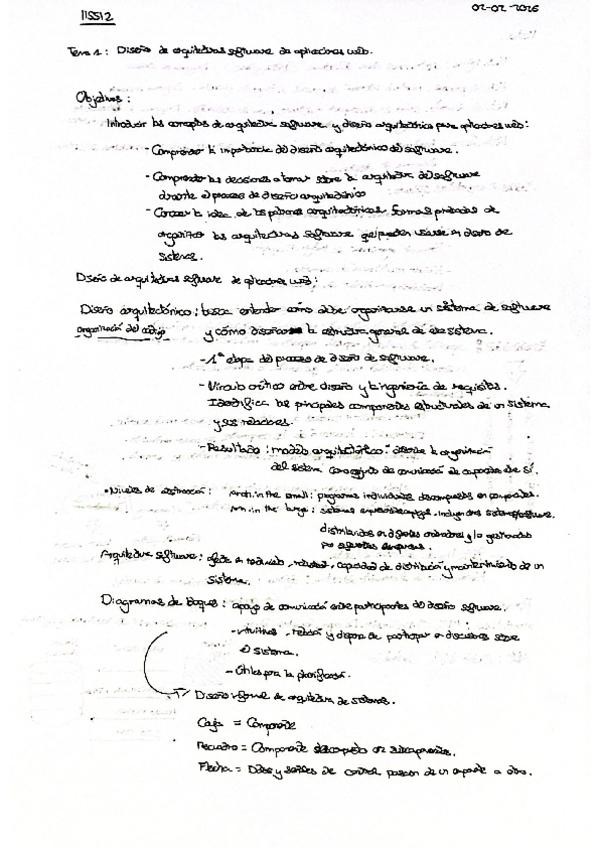 IISSI2
02-02-2026
Tema 1: Diseño de arquitectura software de aplicaciones web.
Objetivos:
Introducir los conceptos de arquitectura software y diseño arquitectónico para aplicaciones web:
- Comprender la importancia del diseño arquitectónico del software.
- Comprender las decisiones a tomar sobre la arquitectura del software
durante el proceso de diseño arquitectónico
- Conocer la idea de los patrones arquitectónicos, formas probadas de
organizar las arquitecturas software que pueden usarse en diseño de
sistemas.
Diseño de arquitectura software de aplicaciones web:
Diseño arquitectónico: busca entender cómo debe organizarse un sistema de software
organización del código y cómo diseñar la estructura general de ese sistema.
- 1ª etapa del proceso de diseño de software.
- Vínculo crítico entre diseño y la ingeniería de requisitos.
Identifica los principales componentes estructurales de un sistema
y sus relaciones.
- Resultado: modelo arquitectónico: describe la organización
del sistema como conjunto de comunicación de componentes entre sí.
• Niveles de abstracción: Arch. in the small: programas individuales descompuestos en componentes.
Arch. in the large: sistemas empresariales, incluyen otros sistemas software,
distribuidos en diferentes ordenadores y lo gestionados
por diferentes empresas.
Arquitectura software: afecta en rendimiento, robustez, capacidad de distribución y mantenimiento de un
sistema.
Diagramas de bloques: apoyo de comunicación entre participantes del diseño software.
- intuitivos, y de participar en discusiones sobre
el sistema.
- Útiles para la planificación.
Diseño informal de arquitectura de sistemas.
Caja = Componente
Recuadro = Componente descompuesto en subcomponentes.
Flecha = Datos y señales de control pasan de un componente a otro.